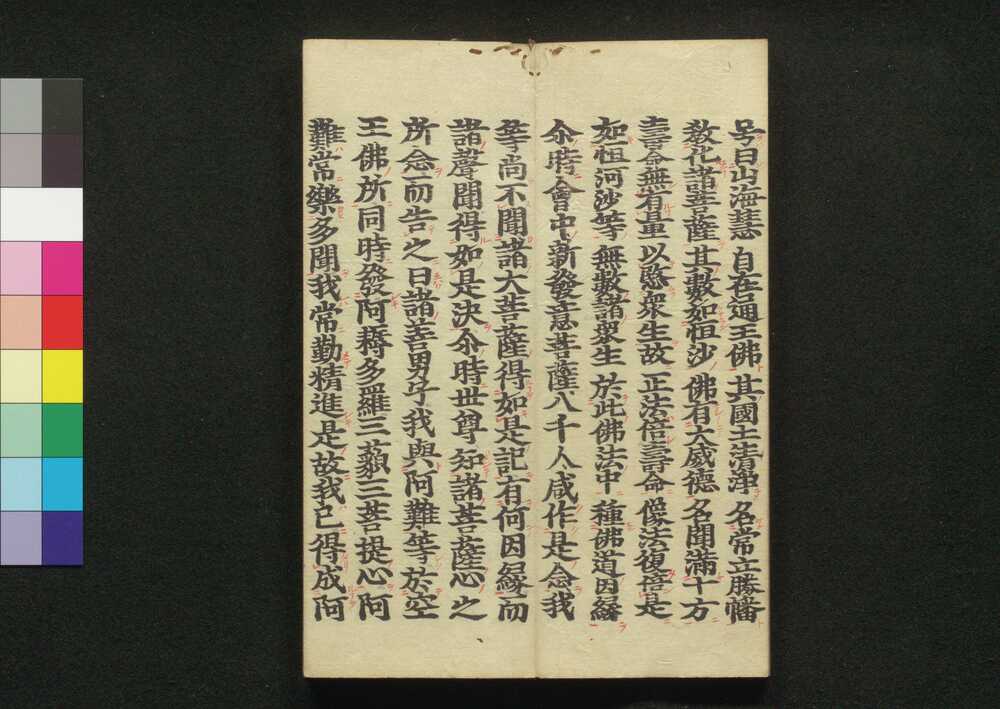 号曰山海慧 自在通王佛 其國土清淨 名常立勝幡
教化諸菩薩 其數如恒沙 佛有大威德 名聞滿十方
壽命無有量 以愍衆生故 正法倍壽命 像法復倍是
如恒河沙等 無數諸衆生 於此佛法中 種佛道因縁
尒時會中新發意菩薩八千人咸作是念我
等尚不聞諸大菩薩得如是記有何因縁而
諸聲聞得如是決尒時世尊知諸菩薩心之
所念而告之曰諸善男子我與阿難等於空
王佛所同時發阿耨多羅三藐三菩提心阿
難常樂多聞我常勤精進是故我已得成阿